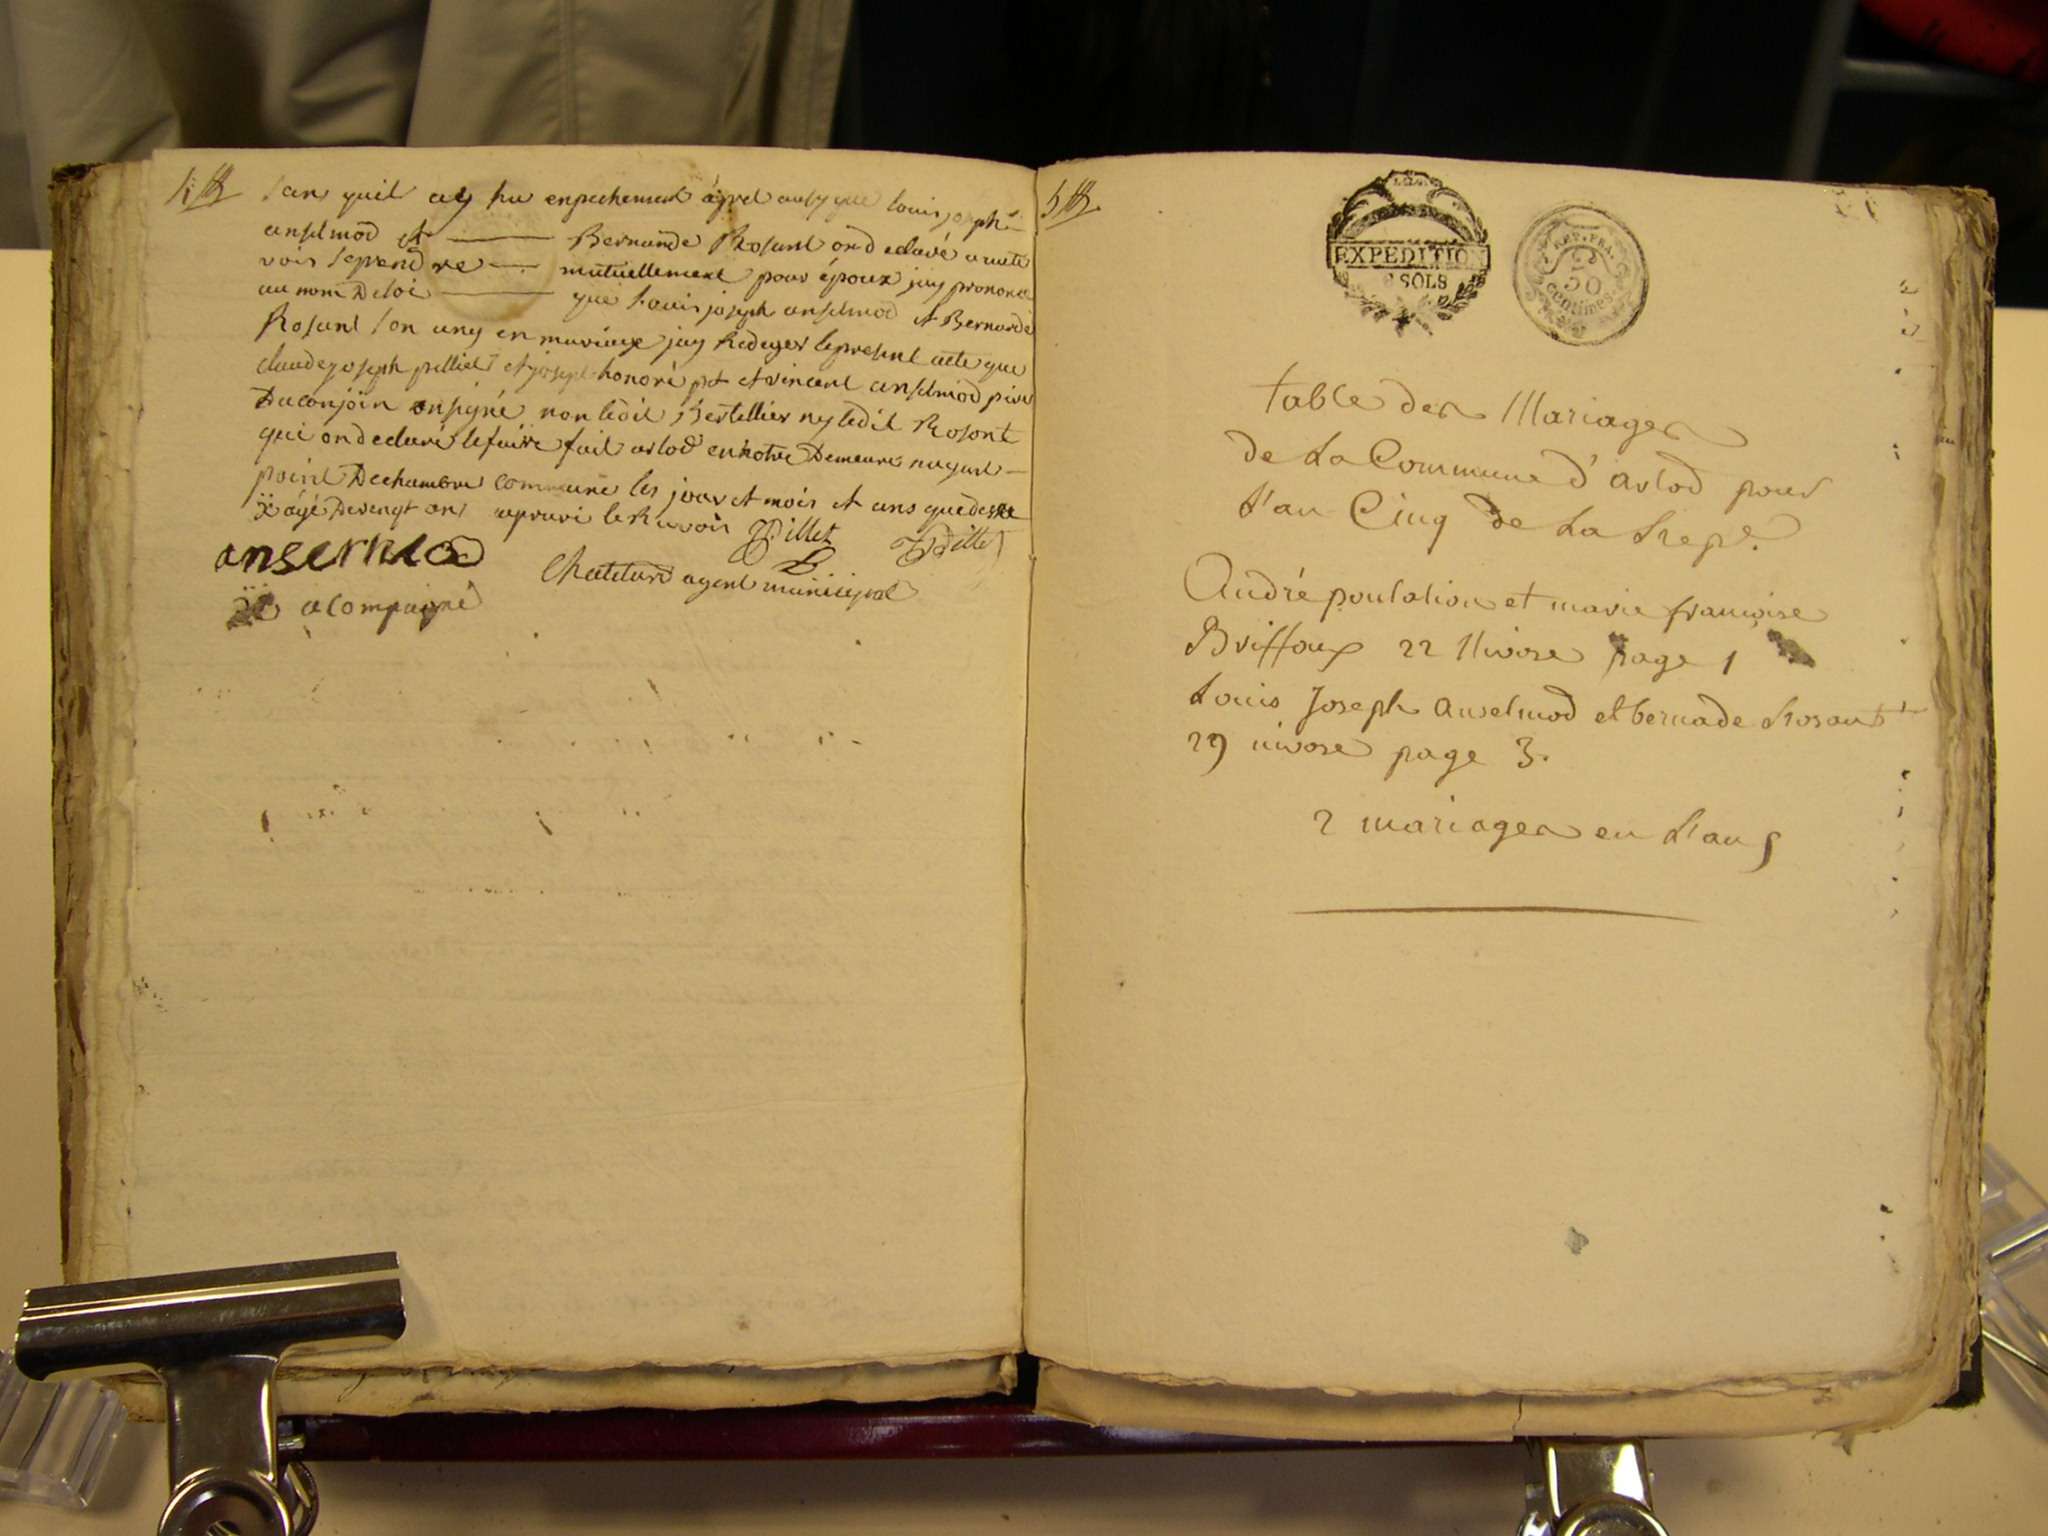 sans quil aly hu enpechement áprel ausy que louis joseph
anselmod et Bernarde Rosant ond eclaré a aute
voix se prendre mutuellement pour époux jay prononcé
au nom De loi que Louis joseph anselmod et Bernarde
Rosant son uny en mariage jay Rédeger le present acte que
claude joseph pilliet et joseph honoré et vincent anselmod pere
Du conjoin on signé non ledit Bertellier ny ledit Rosont
qui on declaré le faire fait arlod en notre Demeure nayant
point De chambre commune les jour et mois et ans que desse
agé De vengt ans apruvé le Renvoir Pillet Pillet
anselmod
agent municipal
acompagné
EXPEDITION
SOLS
REP. FRA.
50
centimes
table des Mariages
de La Commune d'arlod pour
L'an Cinq de La Rep.e
André poulation et marie françoise
Briffoux 22 Nivose page 1
Louis Joseph anselmod et bernade Rosant
29 nivose page 3.
2 mariages en L'an 5